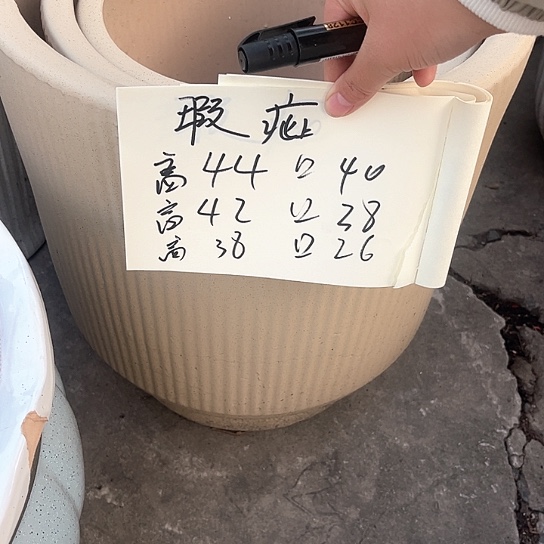 瑕疵
高 44 口 40
高 42 口 38
高 38 口 26